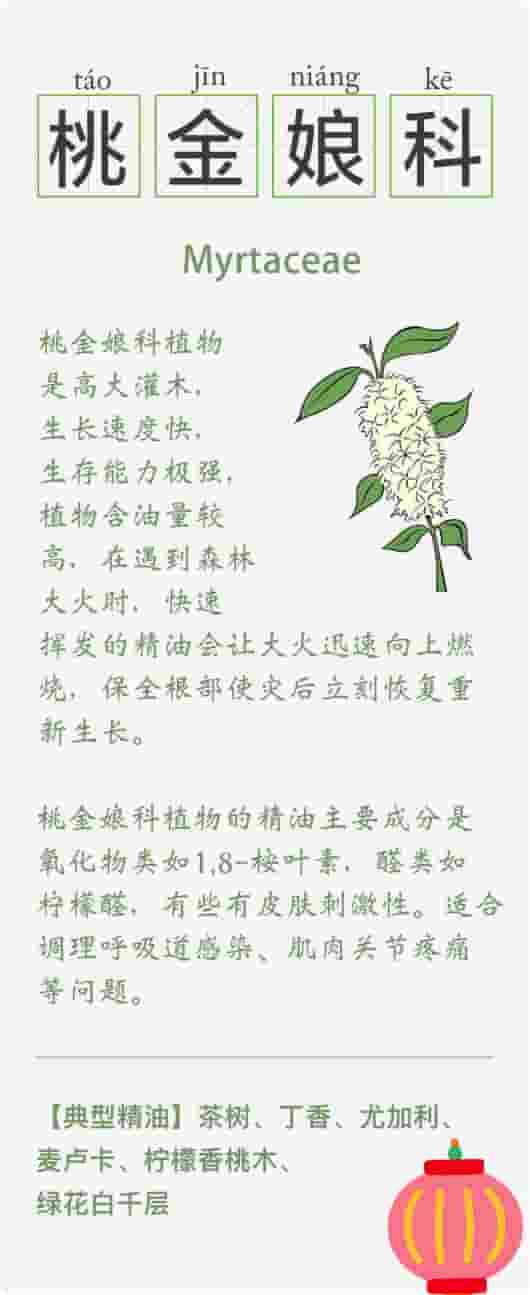 táo jīn niáng kē
桃金娘科
Myrtaceae
桃金娘科植物
是高大灌木，
生长速度快，
生存能力极强，
植物含油量较
高，在遇到森林
大火时，快速
挥发的精油会让大火迅速向上燃
烧，保全根部使灾后立刻恢复重
新生长。
桃金娘科植物的精油主要成分是
氧化物类如1,8-桉叶素，醛类如
柠檬醛，有些有皮肤刺激性。适合
调理呼吸道感染、肌肉关节疼痛
等问题。
【典型精油】茶树、丁香、尤加利、
麦卢卡、柠檬香桃木、
绿花白千层